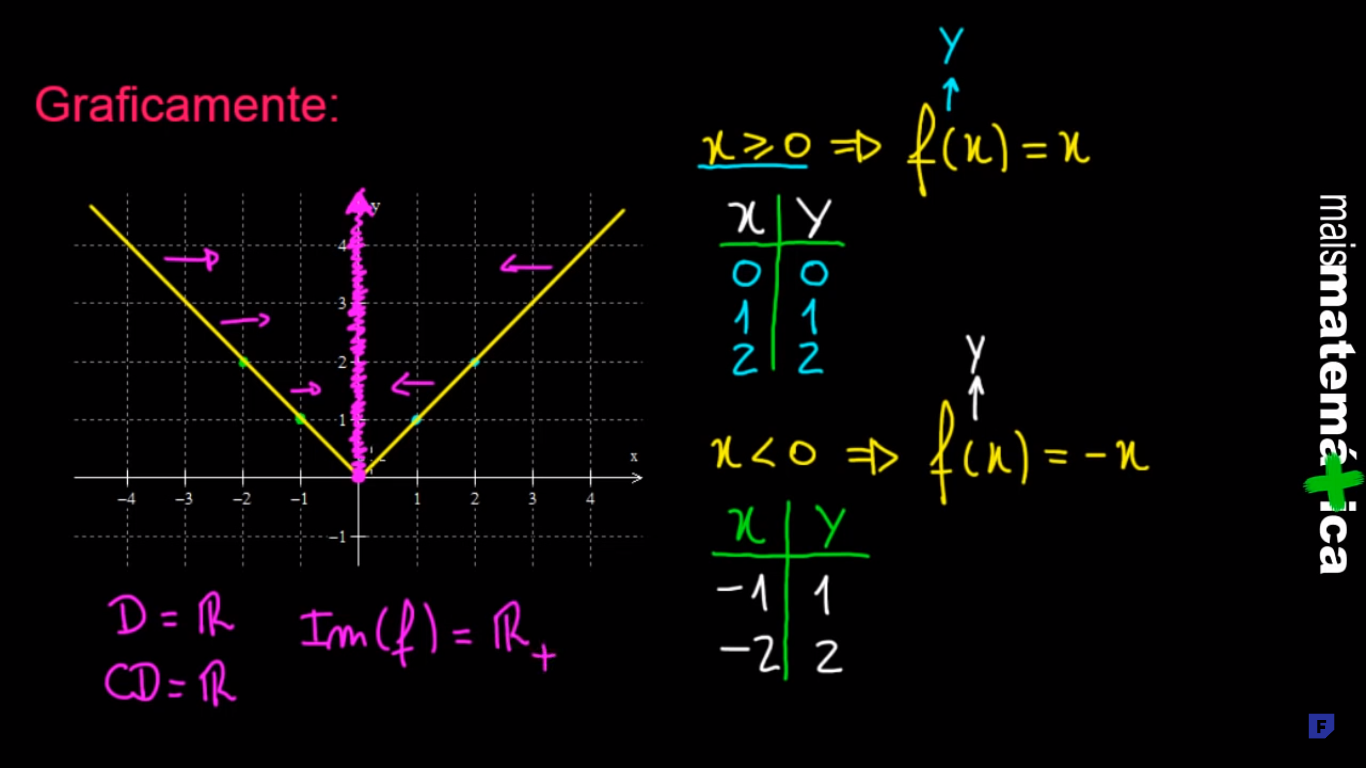 Graficamente:
y
4
3
2
1
x
−4 −3 −2 −1 1 2 3 4
−1
D = ℝ
CD = ℝ
Im(f) = ℝ₊
y
↑
x ≥ 0 ⇒ f(x) = x
x y
0 0
1 1
2 2
y
↑
x < 0 ⇒ f(x) = -x
x y
-1 1
-2 2
maismatemática
F